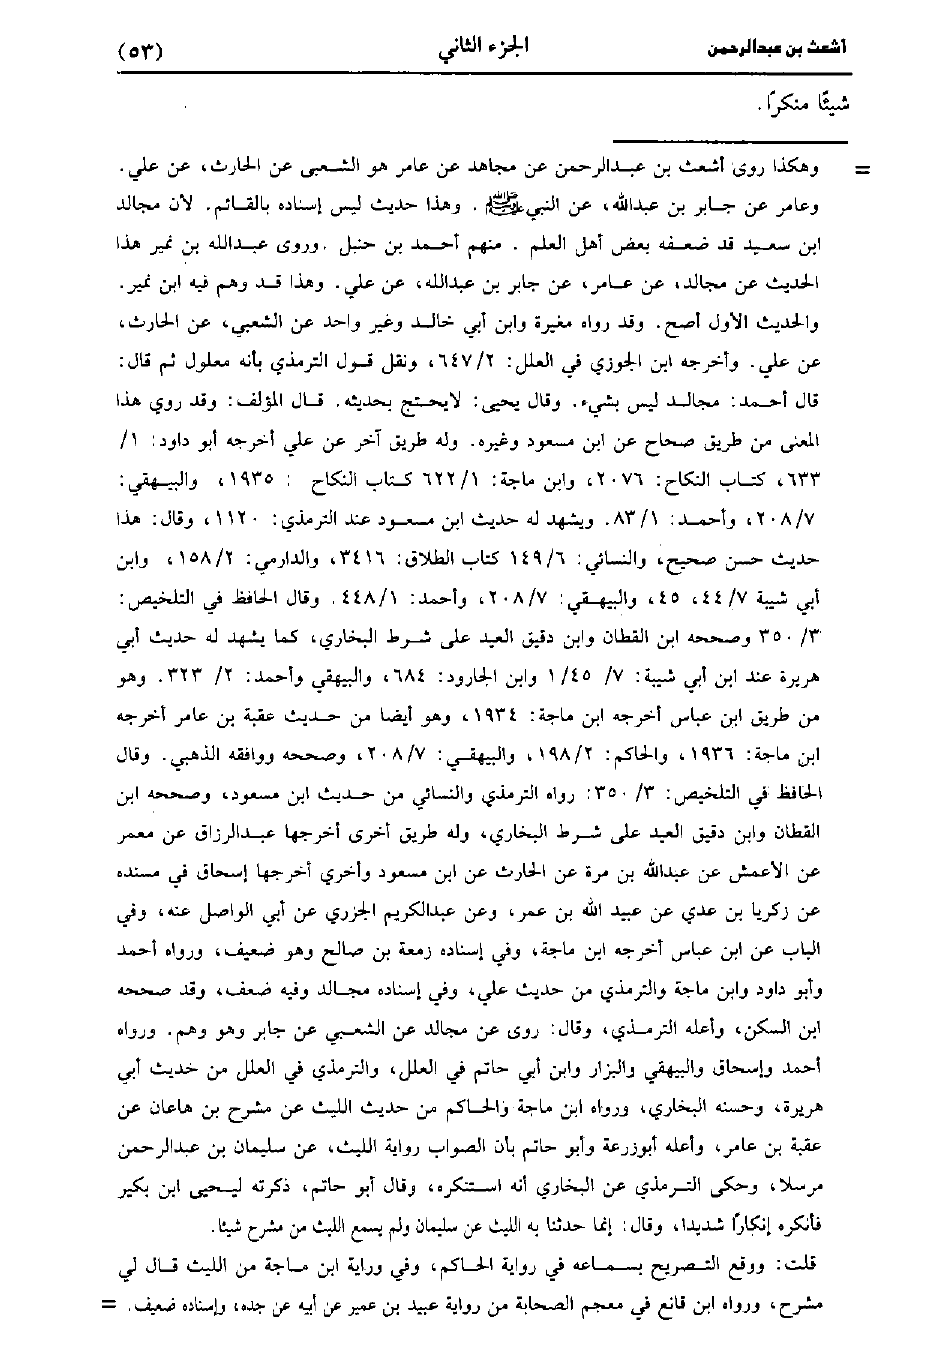 أشعث بن عبدالرحمن الجزء الثاني (٥٣)
شيئًا منكرًا .
= وهكذا روى أشعث بن عبدالرحمن عن مجاهد عن عامر هو الشعبى عن الحارث، عن علي .
وعامر عن جابر بن عبدالله، عن النبي ﷺ . وهذا حديث ليس إسناده بالقائم. لأن مجالد
ابن سعيد قد ضعفه بعض أهل العلم . منهم أحمد بن حنبل . وروى عبدالله بن نمير هذا
الحديث عن مجالد، عن عامر، عن جابر بن عبدالله، عن علي. وهذا قد وهم فيه ابن نمير.
والحديث الأول أصح. وقد رواه مغيرة وابن أبي خالد وغير واحد عن الشعبي، عن الحارث،
عن علي . وأخرجه ابن الجوزي في العلل: ٢/ ٦٤٧، ونقل قول الترمذي بأنه معلول ثم قال:
قال أحمد: مجالد ليس بشيء. وقال يحيى: لايحتج بحديثه. قال المؤلف: وقد روي هذا
المعنى من طريق صحاح عن ابن مسعود وغيره. وله طريق آخر عن علي أخرجه أبو داود: ١/
٦٣٣، كتاب النكاح: ٢٠٧٦، وابن ماجة: ١/ ٦٢٢ كتاب النكاح : ١٩٣٥، والبيهقي:
٧/ ٢٠٨، وأحمد: ١/ ٨٣. ويشهد له حديث ابن مسعود عند الترمذي: ١١٢٠، وقال: هذا
حديث حسن صحيح، والنسائي: ٦/ ١٤٩ كتاب الطلاق: ٣٤١٦، والدارمي: ٢/ ١٥٨، وابن
أبي شيبة ٧/ ٤٤، ٤٥، والبيهقي: ٧/ ٢٠٨، وأحمد: ١/ ٤٤٨. وقال الحافظ في التلخيص:
٣/ ٣٥٠ وصححه ابن القطان وابن دقيق العيد على شرط البخاري، كما يشهد له حديث أبي
هريرة عند ابن أبي شيبة: ٧/ ٤٥/ ١ وابن الجارود: ٦٨٤، والبيهقي وأحمد: ٢/ ٣٢٣. وهو
من طريق ابن عباس أخرجه ابن ماجة: ١٩٣٤، وهو أيضا من حديث عقبة بن عامر أخرجه
ابن ماجة: ١٩٣٦، والحاكم: ٢/ ١٩٨، والبيهقي: ٧/ ٢٠٨، وصححه ووافقه الذهبي. وقال
الحافظ في التلخيص: ٣/ ٣٥٠: رواه الترمذي والنسائي من حديث ابن مسعود، وصححه ابن
القطان وابن دقيق العيد على شرط البخاري، وله طريق أخرى أخرجها عبدالرزاق عن معمر
عن الأعمش عن عبدالله بن مرة عن الحارث عن ابن مسعود وأخري أخرجها إسحاق في مسنده
عن زكريا بن عدي عن عبيد الله بن عمر، وعن عبدالكريم الجزري عن أبي الواصل عنه، وفي
الباب عن ابن عباس أخرجه ابن ماجة، وفي إسناده زمعة بن صالح وهو ضعيف، ورواه أحمد
وأبو داود وابن ماجة والترمذي من حديث علي، وفي إسناده مجالد وفيه ضعف، وقد صححه
ابن السكن، وأعله الترمذي، وقال: روى عن مجالد عن الشعبي عن جابر وهو وهم. ورواه
أحمد وإسحاق والبيهقي والبزار وابن أبي حاتم في العلل، والترمذي في العلل من حديث أبي
هريرة، وحسنه البخاري، ورواه ابن ماجة والحاكم من حديث الليث عن مشرح بن هاعان عن
عقبة بن عامر، وأعله أبوزرعة وأبو حاتم بأن الصواب رواية الليث، عن سليمان بن عبدالرحمن
مرسلا، وحكى الترمذي عن البخاري أنه استنكره، وقال أبو حاتم، ذكرته ليحيى ابن بكير
فأنكره إنكارًا شديدا، وقال: إنما حدثنا به الليث عن سليمان ولم يسمع الليث من مشرح شيئا.
قلت: ووقع التصريح بسماعه في رواية الحاكم، وفي وراية ابن ماجة من الليث قال لي
مشرح، ورواه ابن قانع في معجم الصحابة من رواية عبيد بن عمير عن أبيه عن جده، وإسناده ضعيف. =